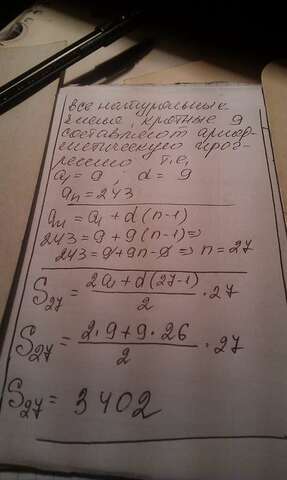 все натуральные
числа, кратные 9
составляют ариф-
метическую прог-
рессию т.е,
a₁ = 9 , d = 9
aₙ = 243
aₙ = a₁ + d(n-1)
243 = 9 + 9(n-1) ⇒
243 = 9 + 9n - 9 ⇒ n = 27
S₂₇ = (2a₁ + d(27-1))/2 · 27
S₂₇ = (2·9 + 9·26)/2 · 27
S₂₇ = 3402